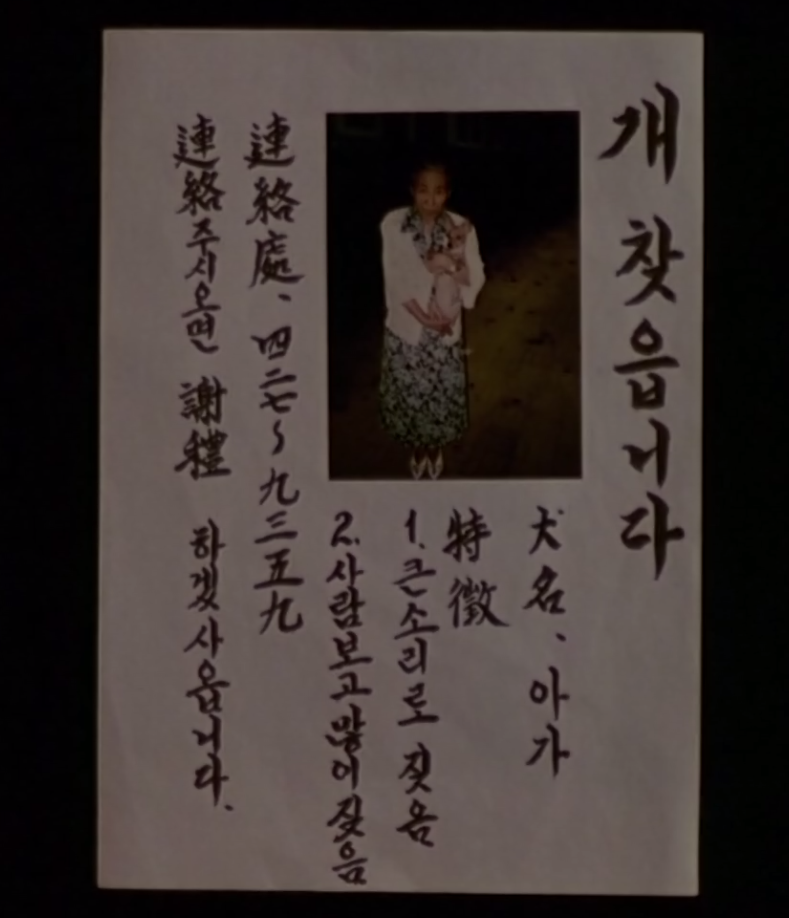 개 찾읍니다
犬名、아가
特徵
1. 큰소리로 짖음
2. 사람보고 많이 짖음
連絡處、四二七~九三五九
連絡주시오면 謝禮 하겠사옵니다.